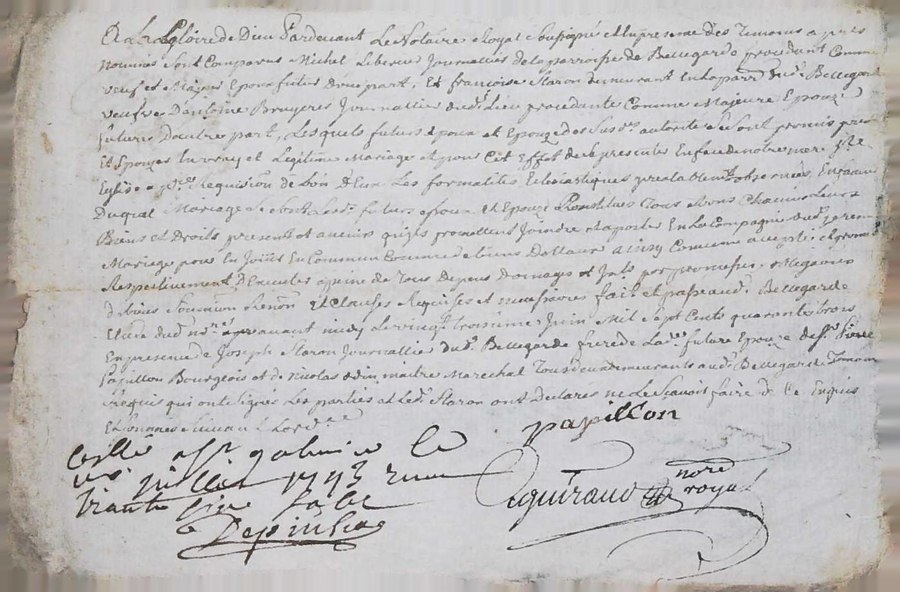 A La Gloire de Dieu Pardevant Le Notaire Royal Soussigné et En presence des Temoins apres
Nommes sont Comparus Michel Journallier de la parroisse de Bellegarde procedant Comme
veuf et Majeur Epoux futur d'une part, Et francoise Staron demeurant en la parr. dud. Bellegarde
veufve D'antoine Bruyeres Journallier dud. Lieu procedante Comme Majeure Epouze
future D'autre part, Lesquels futurs Epoux et Epouze de Sus autorité Se sont promis prendre
Et Epouzer En vray et Legitime Mariage et pour Cet Effet de se presenter En face de notre mere Ste
Eglise a pre. Requisition de L'un D'Eux Les formalités Eclesiastiques prealablemt. observées, En faveur
Duquel Mariage Se sont Lesd. futurs Epoux et Epouze Constitués tous et uns Chacuns Leurs
Biens et Droits present et avenir quils promettent Joindre et aporter En La Compagnie dud. present
Mariage pour En Jouir En Commun Comme de biens Dottaux ainsy Convenu accepté et promis
Respectivement D'Executer a peine de Tous Depens Domages et Jnts. par promesses, obligations
de biens Soumions Renons. Et Clauses Requises et necessaires fait et passé aud. Bellegarde
Etude dud. nre. avant midy Le vingt troisieme Juin Mil Sept Cents quarante trois
En presence de Joseph Staron Journallier dud. Bellegarde frere de Lade. future Epouze de Sr. Pierre
Papillon Bourgeois et de Nicolas maitre Marechal Tous demeurants aud. Bellegarde Temoins
Requis qui ont signés Les parties et Led. Staron ont Declarés ne Le Scavoir faire De Ce Enquis
Et Sommés Suivant L'ordce.
papillon
Collé a St galmier le
juillet 1743 Reçu
trante
Depinhac
guiraud nore royal